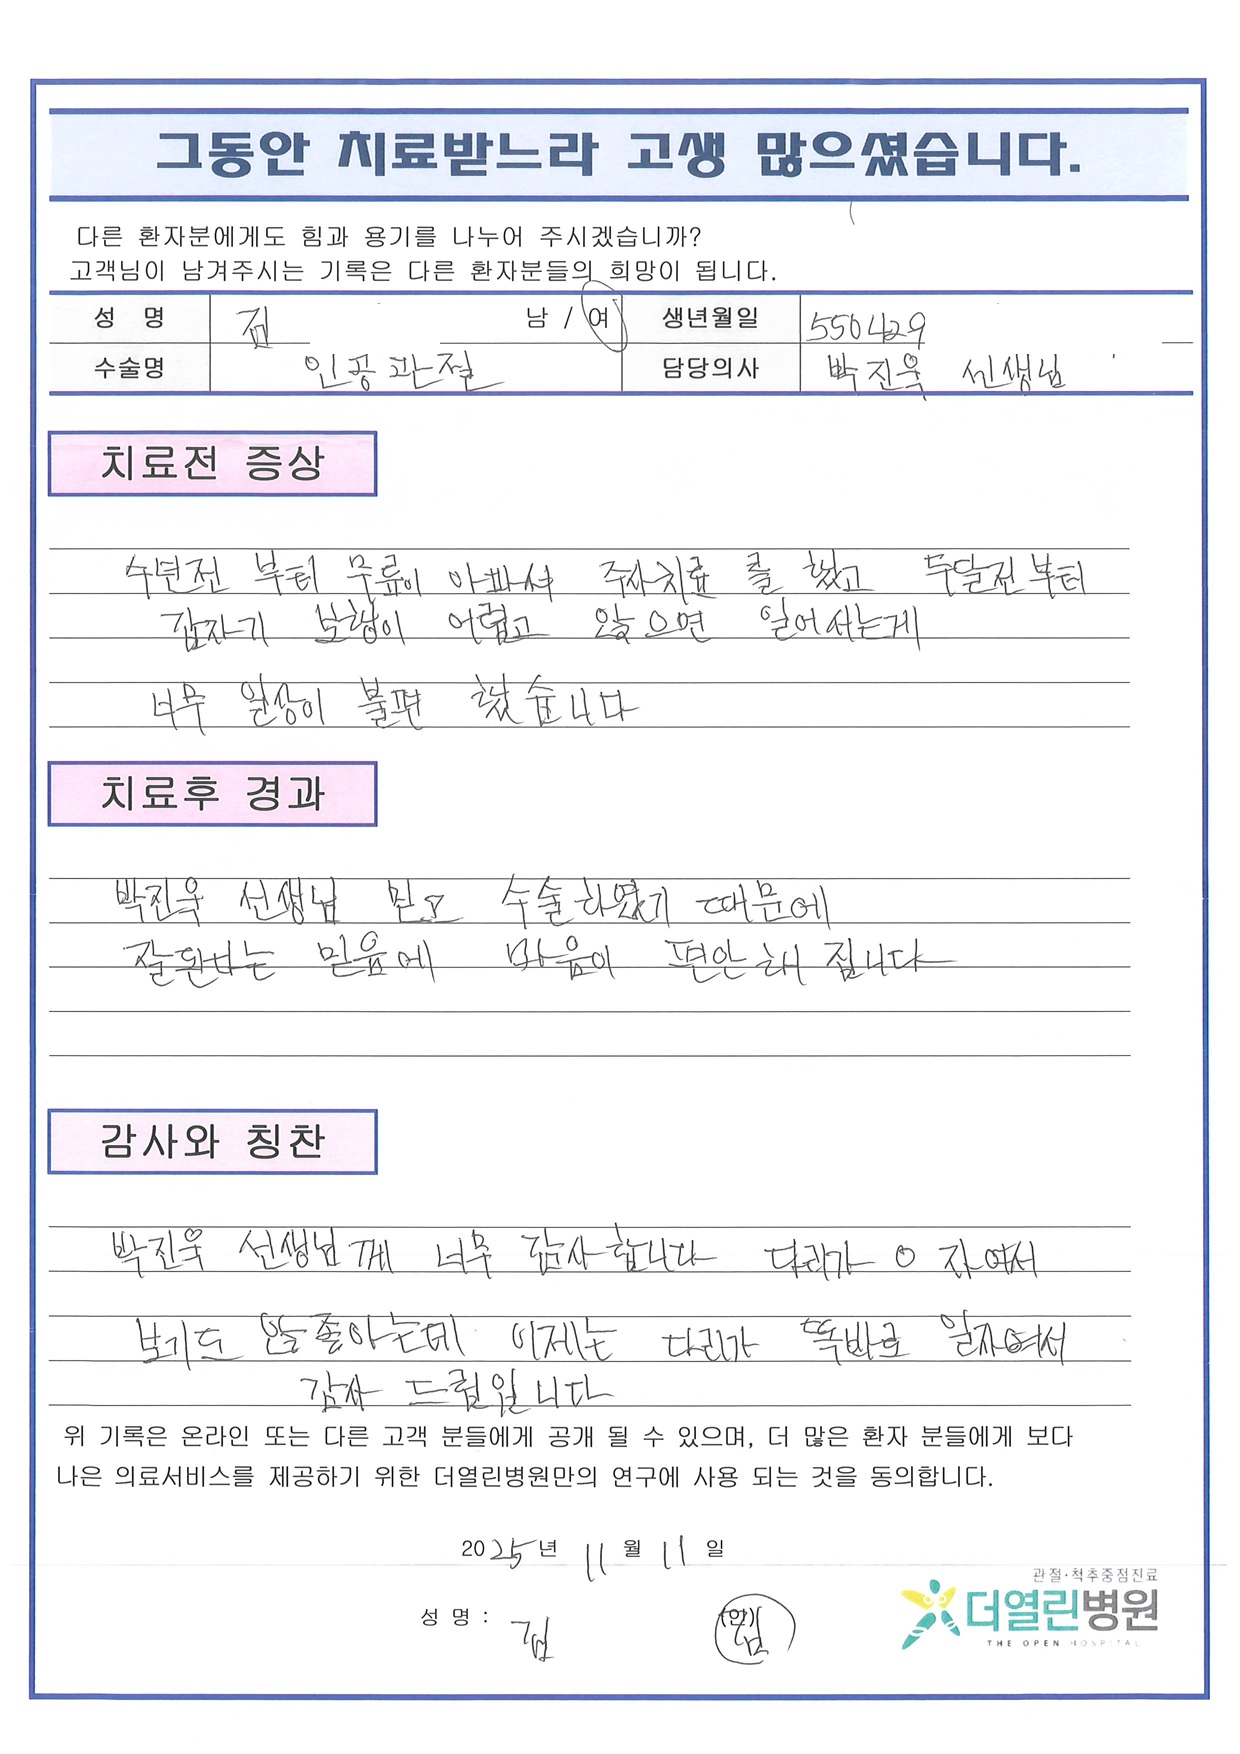 그동안 치료받느라 고생 많으셨습니다.
다른 환자분에게도 힘과 용기를 나누어 주시겠습니까?
고객님이 남겨주시는 기록은 다른 환자분들의 희망이 됩니다.
성 명 김 남 / 여 생년월일 550429
수술명 인공관절 담당의사 박진욱 선생님
치료전 증상
수년전 부터 무릎이 아파서 주사치료 를 했고 두달전부터
갑자기 보행이 어렵고 앉으면 일어서는게
너무 일상이 불편 했습니다
치료후 경과
박진욱 선생님 믿고 수술하였기 때문에
잘된다는 믿음에 마음이 편안해 집니다
감사와 칭찬
박진욱 선생님께 너무 감사합니다 다리가 O 자여서
보기도 안좋아는데 이제는 다리가 똑바로 일자여서
감사 드립입니다
위 기록은 온라인 또는 다른 고객 분들에게 공개 될 수 있으며, 더 많은 환자 분들에게 보다
나은 의료서비스를 제공하기 위한 더열린병원만의 연구에 사용 되는 것을 동의합니다.
2025년 11월 11일
성 명 : 김 (인) 김
관절·척추중점진료
더열린병원
THE OPEN HOSPITAL